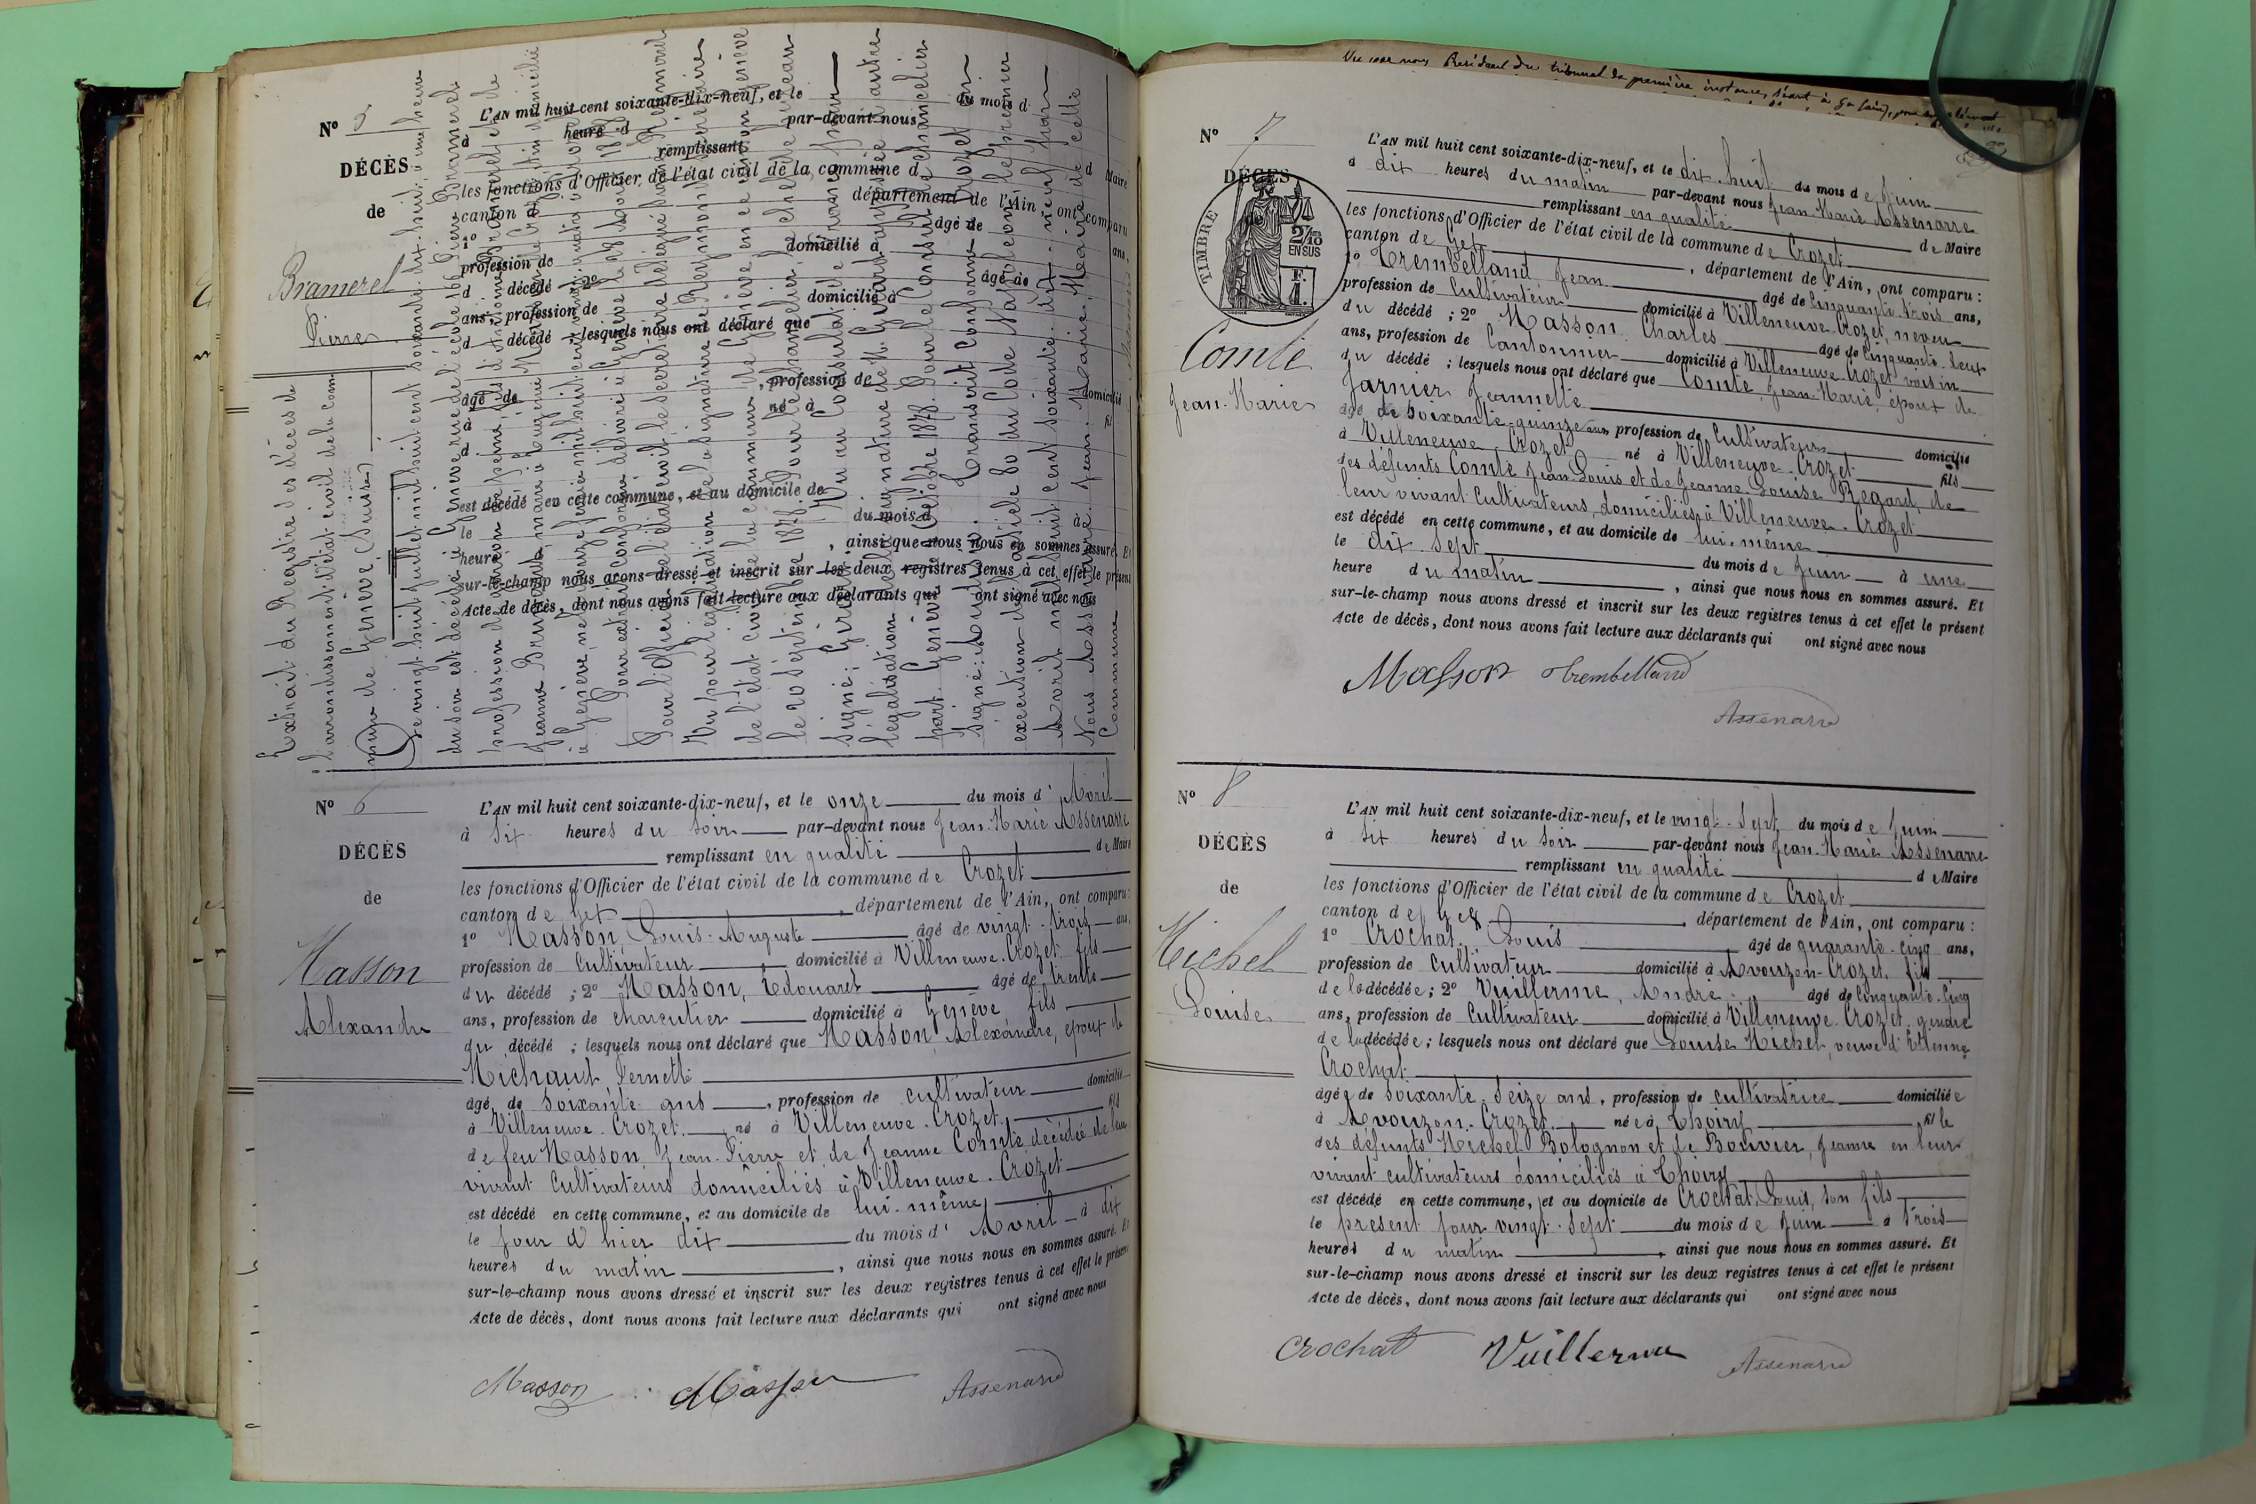 Nº 5
DÉCÈS
de
Bramerel
Pierre
L'AN mil huit cent soixante-dix-neuf, et le du mois d
à heure d par-devant nous
remplissant d Maire
les fonctions d'Officier de l'état civil de la commune d
canton d département de l'Ain, ont comparu
1º âgé de ans,
profession de domicilié à
d décédé 2º âgé de
ans, profession de domicilié à
d décédé ; lesquels nous ont déclaré que
âgé de , profession de domicilié
à né à fil
d
est décédé en cette commune, et au domicile de
le du mois d à
heure , ainsi que nous nous en sommes assuré. Et
sur-le-champ nous avons dressé et inscrit sur les deux registres tenus à cet effet le présent
Acte de décès, dont nous avons fait lecture aux déclarants qui ont signé avec nous
Extrait du Registre des décès de
l'arrondissement de l'état civil de la Com-
mune de Genève (Suisse)
Le vingt huit juillet mil huit cent soixante dix huit à une heure
du soir est décédé à Genève rue de l'école 16, Pierre Bramerel
profession de
Jeanne
à Genève, le
Pour extrait conforme délivré à Genève le 28 1878
Pour l'Officier de l'état civil le secrétaire
Vu pour légalisation de la signature
de l'état civil de la commune de Genève en ce
le 20 Septembre 1878. Pour le chancelier
signé: Vu au Consulat de
légalisation de la signature de M.
part Genève le Octobre 1878. Pour le Consul le chancelier
signé: Transcrit conforme
exécution de l'article 80 du Code Napoléon le premier
Avril mil huit cent soixante dix-neuf par
Nous Assenarre Jean-Marie, Maire de cette
Commune
Nº 6
DÉCÈS
de
Masson
Alexandre
L'AN mil huit cent soixante-dix-neuf, et le onze du mois d' Avril
à six heures du soir par-devant nous Jean-Marie Assenarre
remplissant en qualité de Maire
les fonctions d'Officier de l'état civil de la commune de Crozet
canton de Gex , département de l'Ain, ont comparu :
1º Masson, Louis-Auguste âgé de vingt-trois ans,
profession de Cultivateur , domicilié à Villeneuve-Crozet fils
du décédé ; 2º Masson, Edouard âgé de trente
ans, profession de charcutier domicilié à Genève fils
du décédé ; lesquels nous ont déclaré que Masson, Alexandre, époux de
Michaud, Pernette
âgé de soixante ans , profession de cultivateur domicilié
à Villeneuve-Crozet né à Villeneuve-Crozet, fils
de feu Masson, Jean-Pierre et de Jeanne Comte décédée de leur
vivant Cultivateurs domiciliés à Villeneuve-Crozet
est décédé en cette commune, et au domicile de lui-même
le jour d'hier dix du mois d' Avril à dix
heures du matin , ainsi que nous nous en sommes assuré. Et
sur-le-champ nous avons dressé et inscrit sur les deux registres tenus à cet effet le présent
Acte de décès, dont nous avons fait lecture aux déclarants qui ont signé avec nous
Masson Masson Assenarre
Vu par nous Président du tribunal de première instance, séant à Gex (Ain), pour
Nº 7
DÉCÈS
TIMBRE
2/10
EN SUS
F.
1.
Comte
Jean-Marie
L'AN mil huit cent soixante-dix-neuf, et le dix-huit du mois de Juin
à dix heures du matin par-devant nous Jean Marie Assenarre
remplissant en qualité de Maire
les fonctions d'Officier de l'état civil de la commune de Crozet
canton de Gex , département de l'Ain, ont comparu :
1º Trembelland Jean âgé de cinquante-trois ans,
profession de Cultivateur domicilié à Villeneuve-Crozet, neveu
du décédé ; 2º Masson Charles âgé de cinquante-deux
ans, profession de Cantonnier domicilié à Villeneuve-Crozet voisin
du décédé ; lesquels nous ont déclaré que Comte, Jean-Marie, époux de
Jarnier Jeannette
âgé de soixante-quinze ans profession de Cultivateur domicilié
à Villeneuve-Crozet né à Villeneuve-Crozet fils
des défunts Comte Jean-Louis et de Jeanne-Louise Regard, de
leur vivant Cultivateurs, domiciliés à Villeneuve-Crozet
est décédé en cette commune, et au domicile de lui-même
le dix-sept du mois de Juin à une
heure du matin , ainsi que nous nous en sommes assuré. Et
sur-le-champ nous avons dressé et inscrit sur les deux registres tenus à cet effet le présent
Acte de décès, dont nous avons fait lecture aux déclarants qui ont signé avec nous
Masson Trembelland
Assenarre
Nº 8
DÉCÈS
de
Michel
Louise
L'AN mil huit cent soixante-dix-neuf, et le vingt-sept du mois de Juin
à six heures du soir par-devant nous Jean-Marie Assenarre
remplissant en qualité de Maire
les fonctions d'Officier de l'état civil de la commune de Crozet
canton de Gex , département de l'Ain, ont comparu :
1º Crochat, Louis âgé de quarante-cinq ans,
profession de cultivateur domicilié à Avouzon-Crozet, fils
de la décédée ; 2º Vuillerme, André âgé de cinquante-cinq
ans, profession de Cultivateur domicilié à Villeneuve-Crozet gendre
de la décédée ; lesquels nous ont déclaré que Louise Michel, veuve d'Etienne
Crochat
âgée de soixante-seize ans, profession de cultivatrice domiciliée
à Avouzon-Crozet née à Thoiry fille
des défunts Michel Bolognon et de Bouvier, Jeanne en leur
vivant cultivateurs domiciliés à Thoiry
est décédé en cette commune, et au domicile de Crochat, Louis, son fils
le présent jour vingt-sept du mois de Juin à trois
heures du matin , ainsi que nous nous en sommes assuré. Et
sur-le-champ nous avons dressé et inscrit sur les deux registres tenus à cet effet le présent
Acte de décès, dont nous avons fait lecture aux déclarants qui ont signé avec nous
Crochat Vuillerme Assenarre